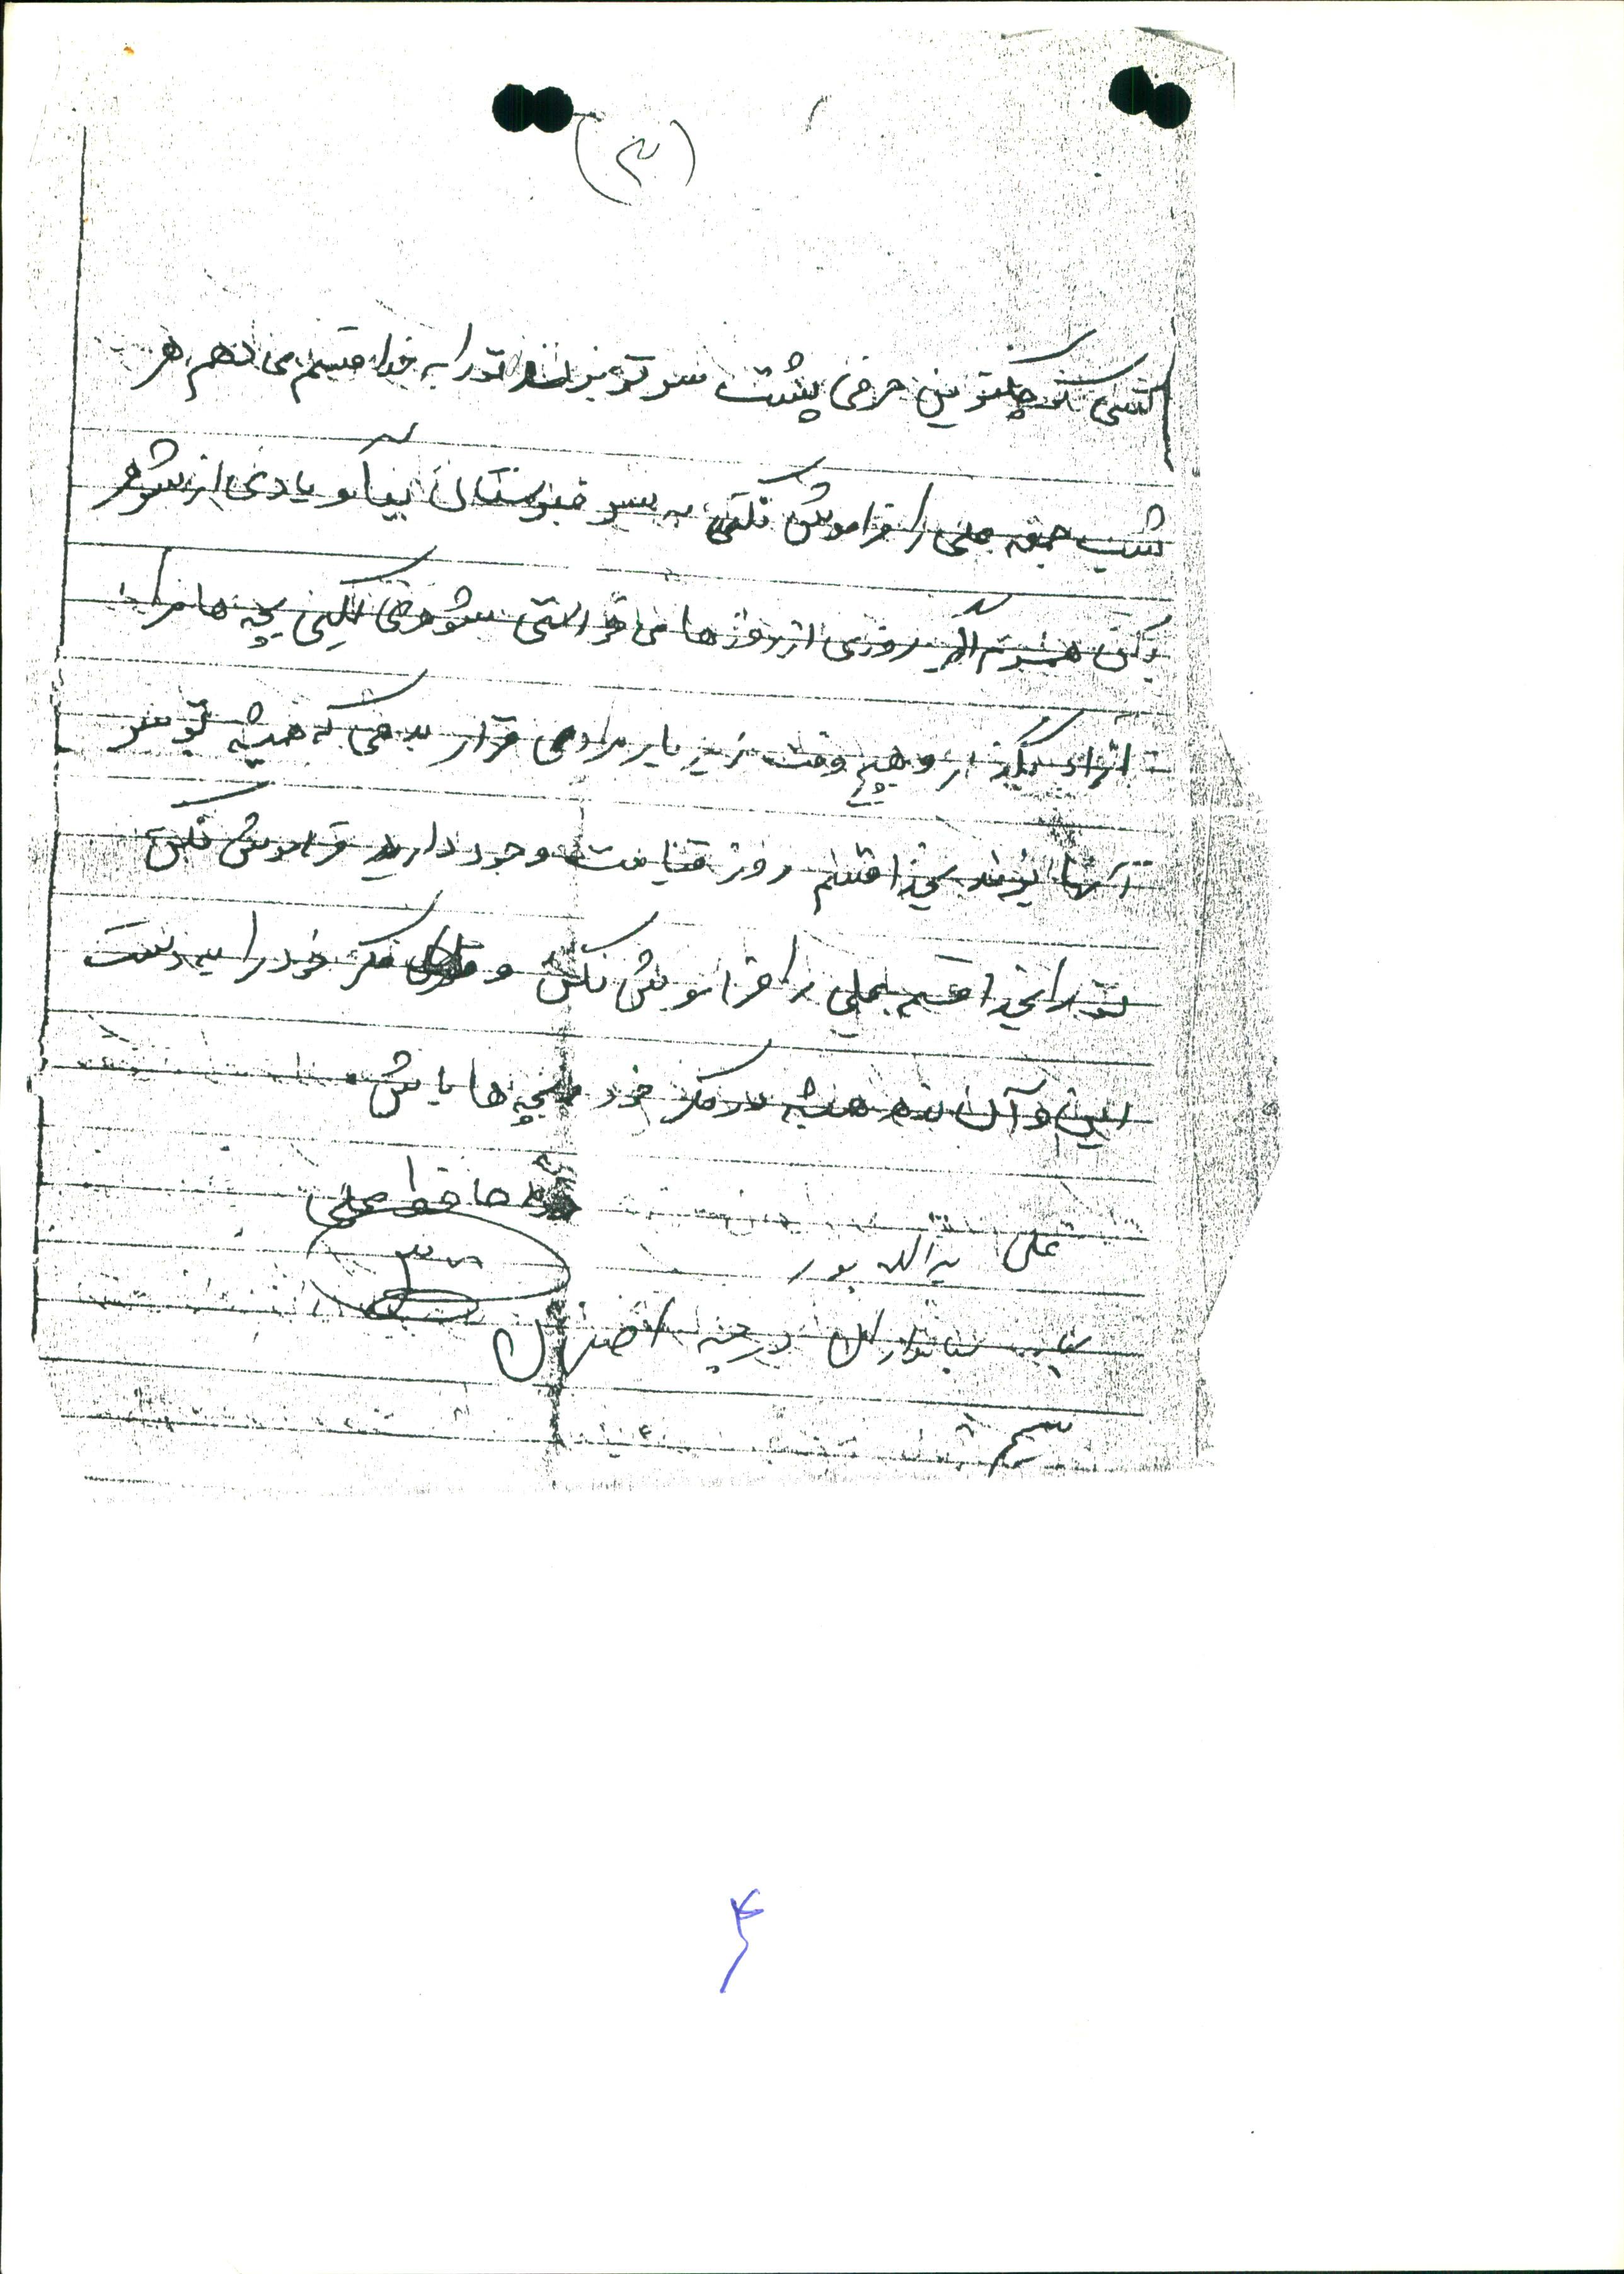 (۳)
کسی کوچکترین حرفی پشت سر تو نزند تو را به خدا قسم می دهم هر
شب جمعه علی را فراموش نکنی به سر قبرستان بیا و یادی از شوهر
بکن همسرم اگر روزی از روزها می خواستی شوهری بگیری بچه ها مرا
آزاد بگذار و هیچ وقت زیر بار مرادهی قرار بدهی که همیشه تو سر
آنها بزند بخدا قسم روز قیامت وجود دارد فراموش نکن
تو را بخدا قسم علی را فراموش نکن و فکر خود را به دست
این و آن نده همیشه در فکر خود بچه ها باش
خدا حافظ علی
علی یدالله پور
۳